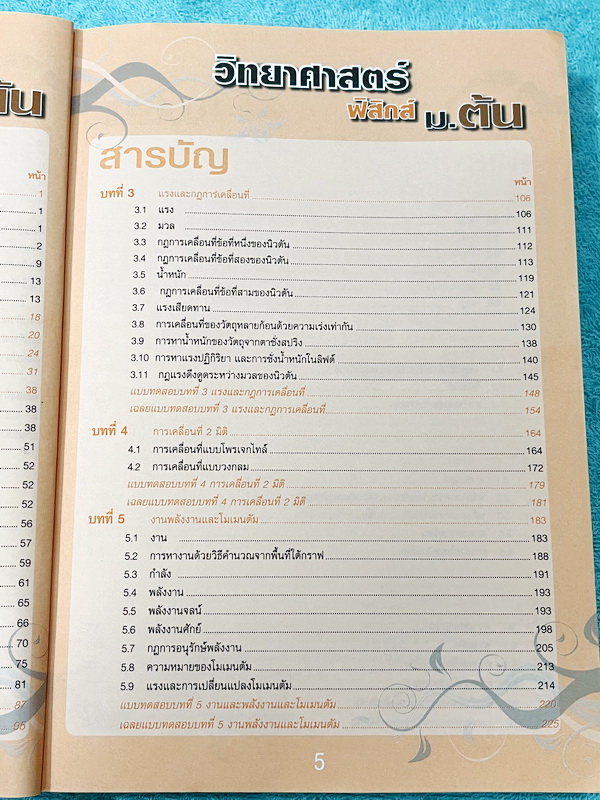 ต้น
หน้า
1
1
2
9
13
13
18
20
24
31
38
38
38
51
52
52
52
56
57
59
61
65
66
70
75
81
87
95
วิทยาศาสตร์
ฟิสิกส์ ม.ต้น
สารบัญ
หน้า
บทที่ 3 แรงและกฎการเคลื่อนที่ 106
3.1 แรง 106
3.2 มวล 111
3.3 กฎการเคลื่อนที่ข้อที่หนึ่งของนิวตัน 112
3.4 กฎการเคลื่อนที่ข้อที่สองของนิวตัน 113
3.5 น้ำหนัก 119
3.6 กฎการเคลื่อนที่ข้อที่สามของนิวตัน 121
3.7 แรงเสียดทาน 124
3.8 การเคลื่อนที่ของวัตถุหลายก้อนด้วยความเร่งเท่ากัน 130
3.9 การหาน้ำหนักของวัตถุจากตาชั่งสปริง 138
3.10 การหาแรงปฏิกิริยา และการชั่งน้ำหนักในลิฟต์ 140
3.11 กฎแรงดึงดูดระหว่างมวลของนิวตัน 145
แบบทดสอบบทที่ 3 แรงและกฎการเคลื่อนที่ 148
เฉลยแบบทดสอบบทที่ 3 แรงและกฎการเคลื่อนที่ 154
บทที่ 4 การเคลื่อนที่ 2 มิติ 164
4.1 การเคลื่อนที่แบบโพรเจกไทล์ 164
4.2 การเคลื่อนที่แบบวงกลม 172
แบบทดสอบบทที่ 4 การเคลื่อนที่ 2 มิติ 179
เฉลยแบบทดสอบบทที่ 4 การเคลื่อนที่ 2 มิติ 181
บทที่ 5 งานพลังงานและโมเมนตัม 183
5.1 งาน 183
5.2 การหางานด้วยวิธีคำนวณจากพื้นที่ใต้กราฟ 188
5.3 กำลัง 191
5.4 พลังงาน 193
5.5 พลังงานจลน์ 193
5.6 พลังงานศักย์ 198
5.7 กฎการอนุรักษ์พลังงาน 205
5.8 ความหมายของโมเมนตัม 213
5.9 แรงและการเปลี่ยนแปลงโมเมนตัม 214
แบบทดสอบบทที่ 5 งานและพลังงานและโมเมนตัม 220
เฉลยแบบทดสอบบทที่ 5 งานพลังงานและโมเมนตัม 225
5